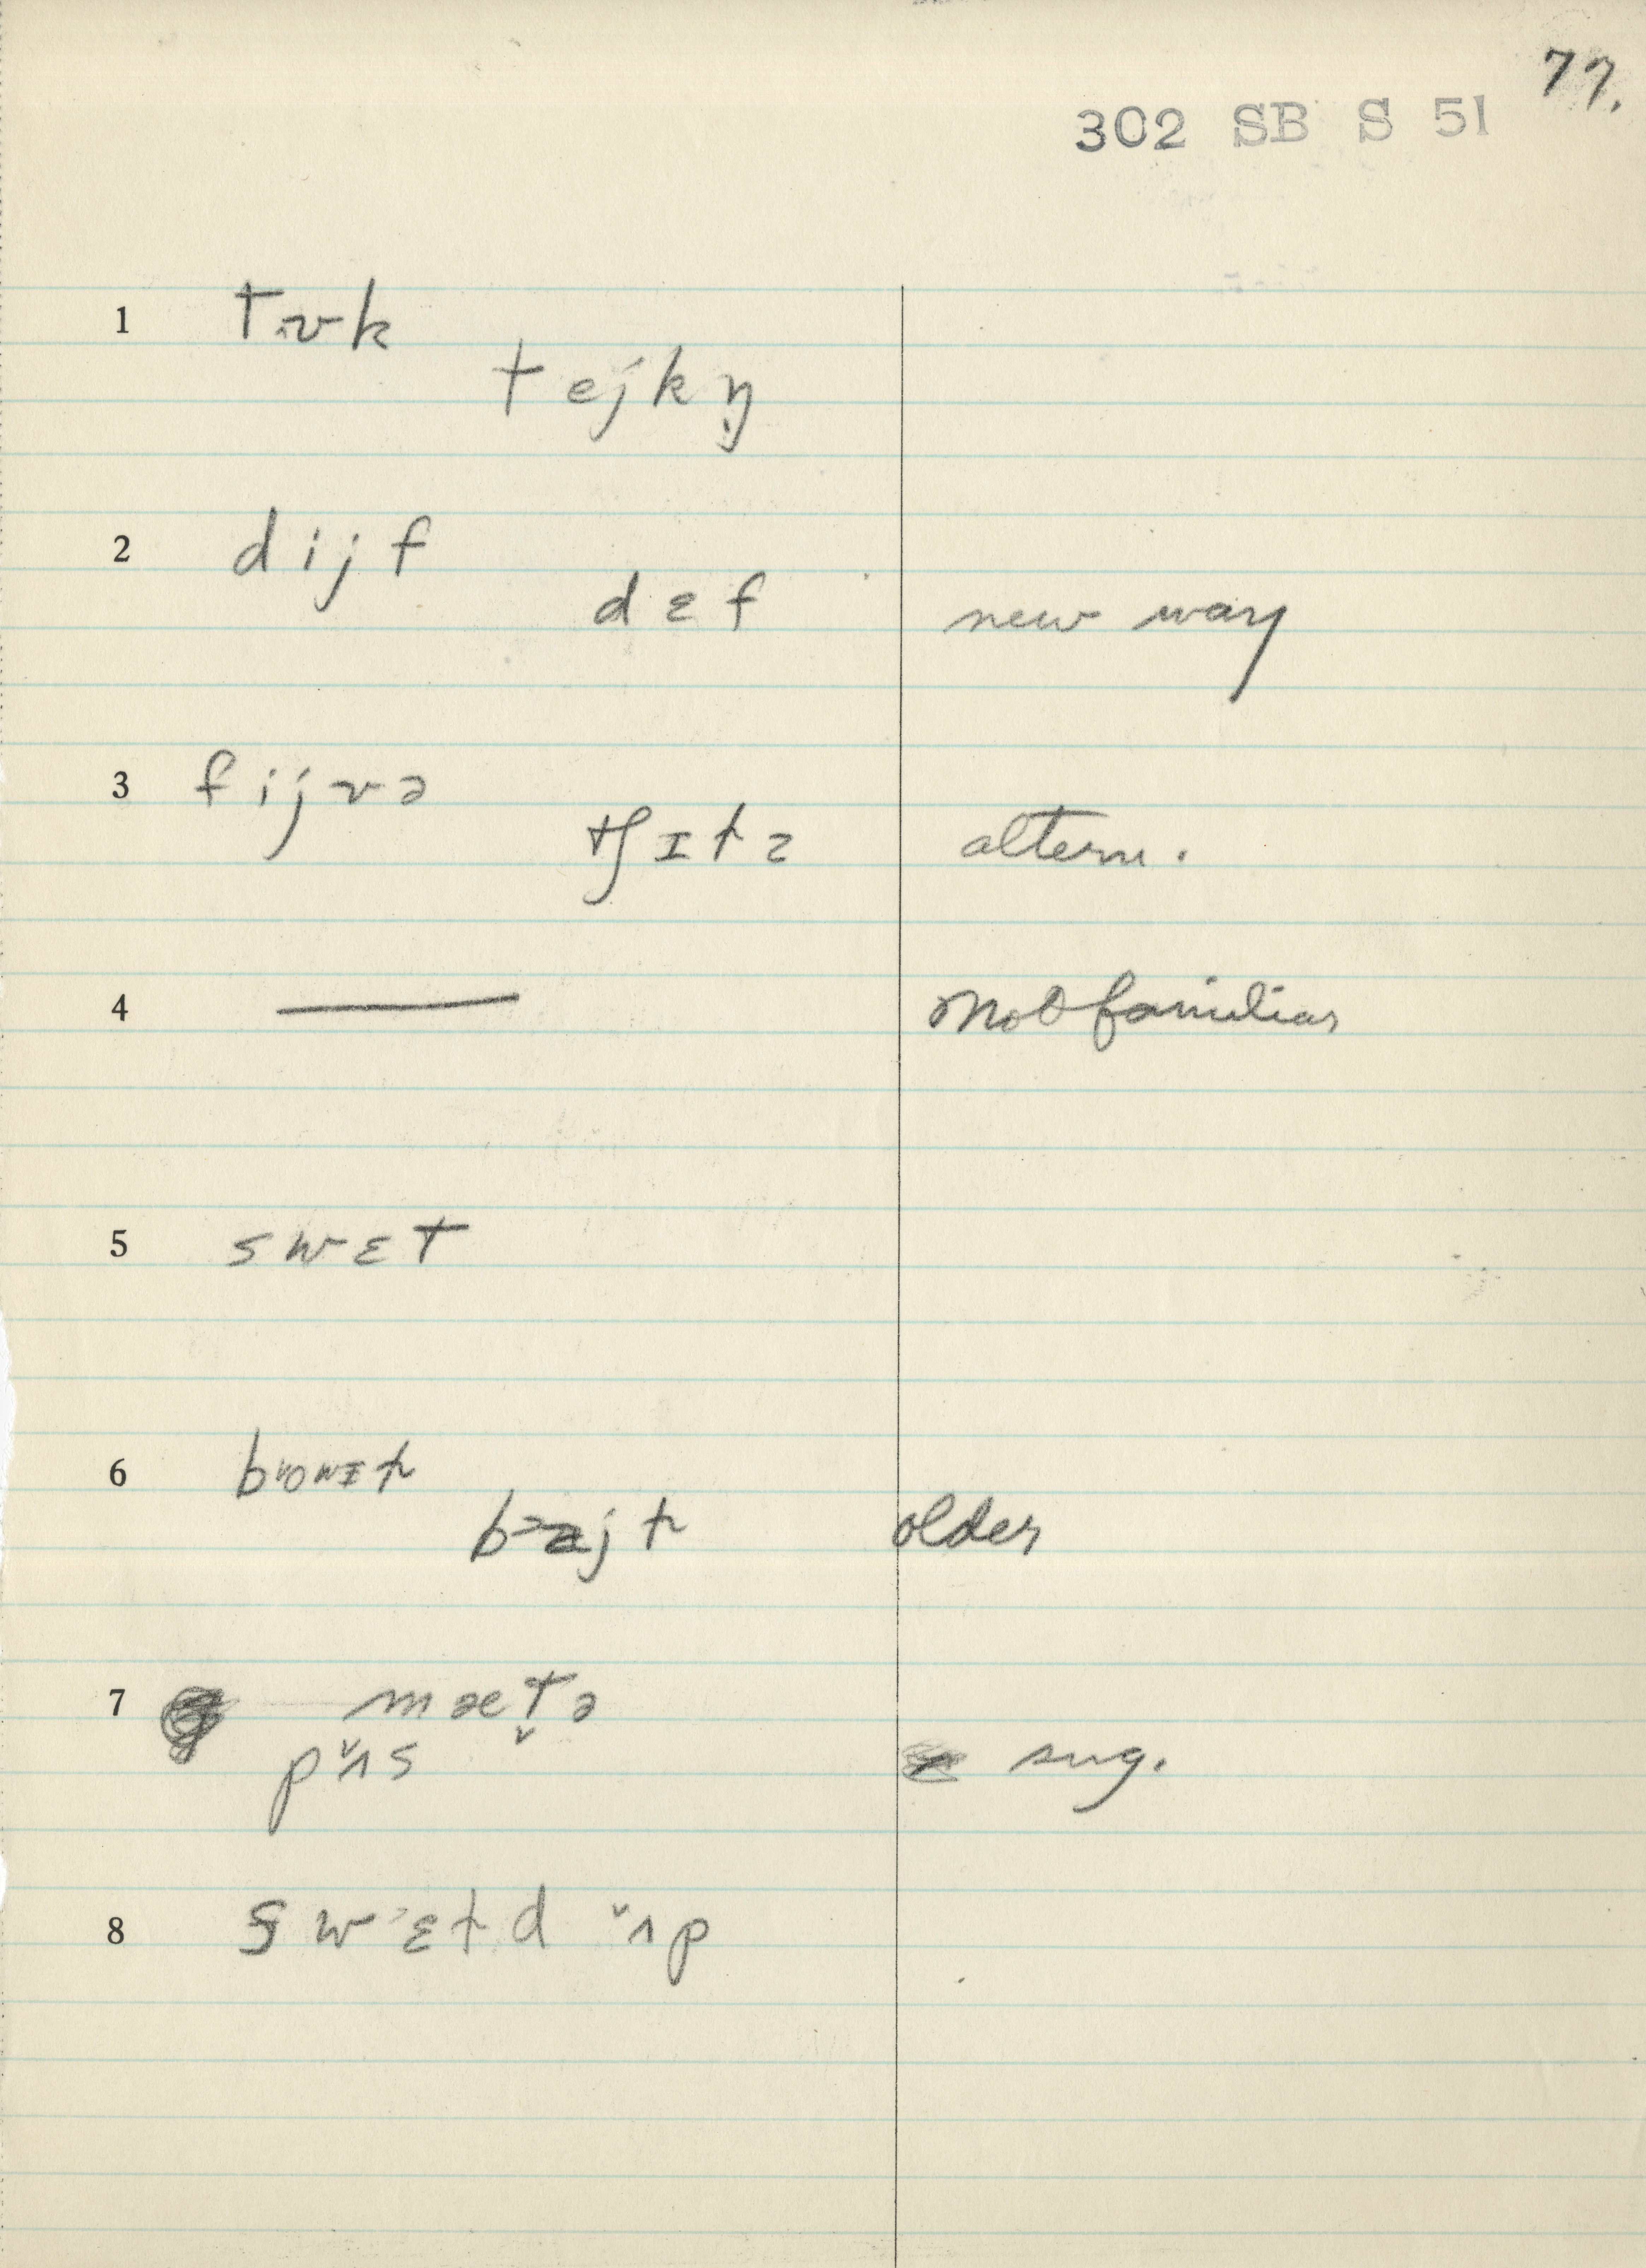 77.
302 SB S 51
1 tᴧʊk
tejkŋ̩
2 dijf
dɛf new way
3 fijvə
tʃɪts altern.
4 — Not familiar
5 swɛt
6
older
7 mætə̬
pʌ̌s sug.
8 swɛtd ʌ̌p